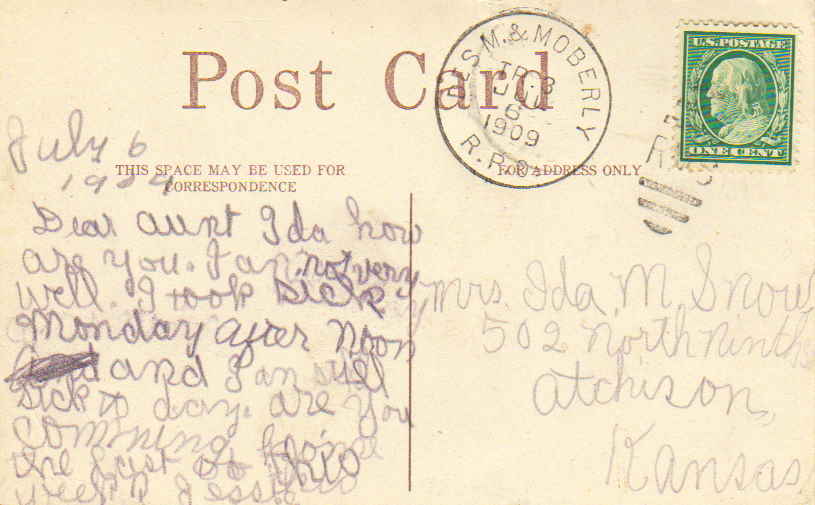 Post Card
DES M. & MOBERLY
TR. 3
JUL
6
1909
R.P.O.
U.S. POSTAGE
ONE CENT
R.M.S
THIS SPACE MAY BE USED FOR
CORRESPONDENCE
FOR ADDRESS ONLY
July 6
1909
Dear aunt Ida how
are you. I an not very
well. I took sick
Monday after noon
and I an still
sick to day. are you
comming home
the first of this
week? Jessie
Mrs. Ida M. Snow
502 North Ninth
Atchison,
Kansas